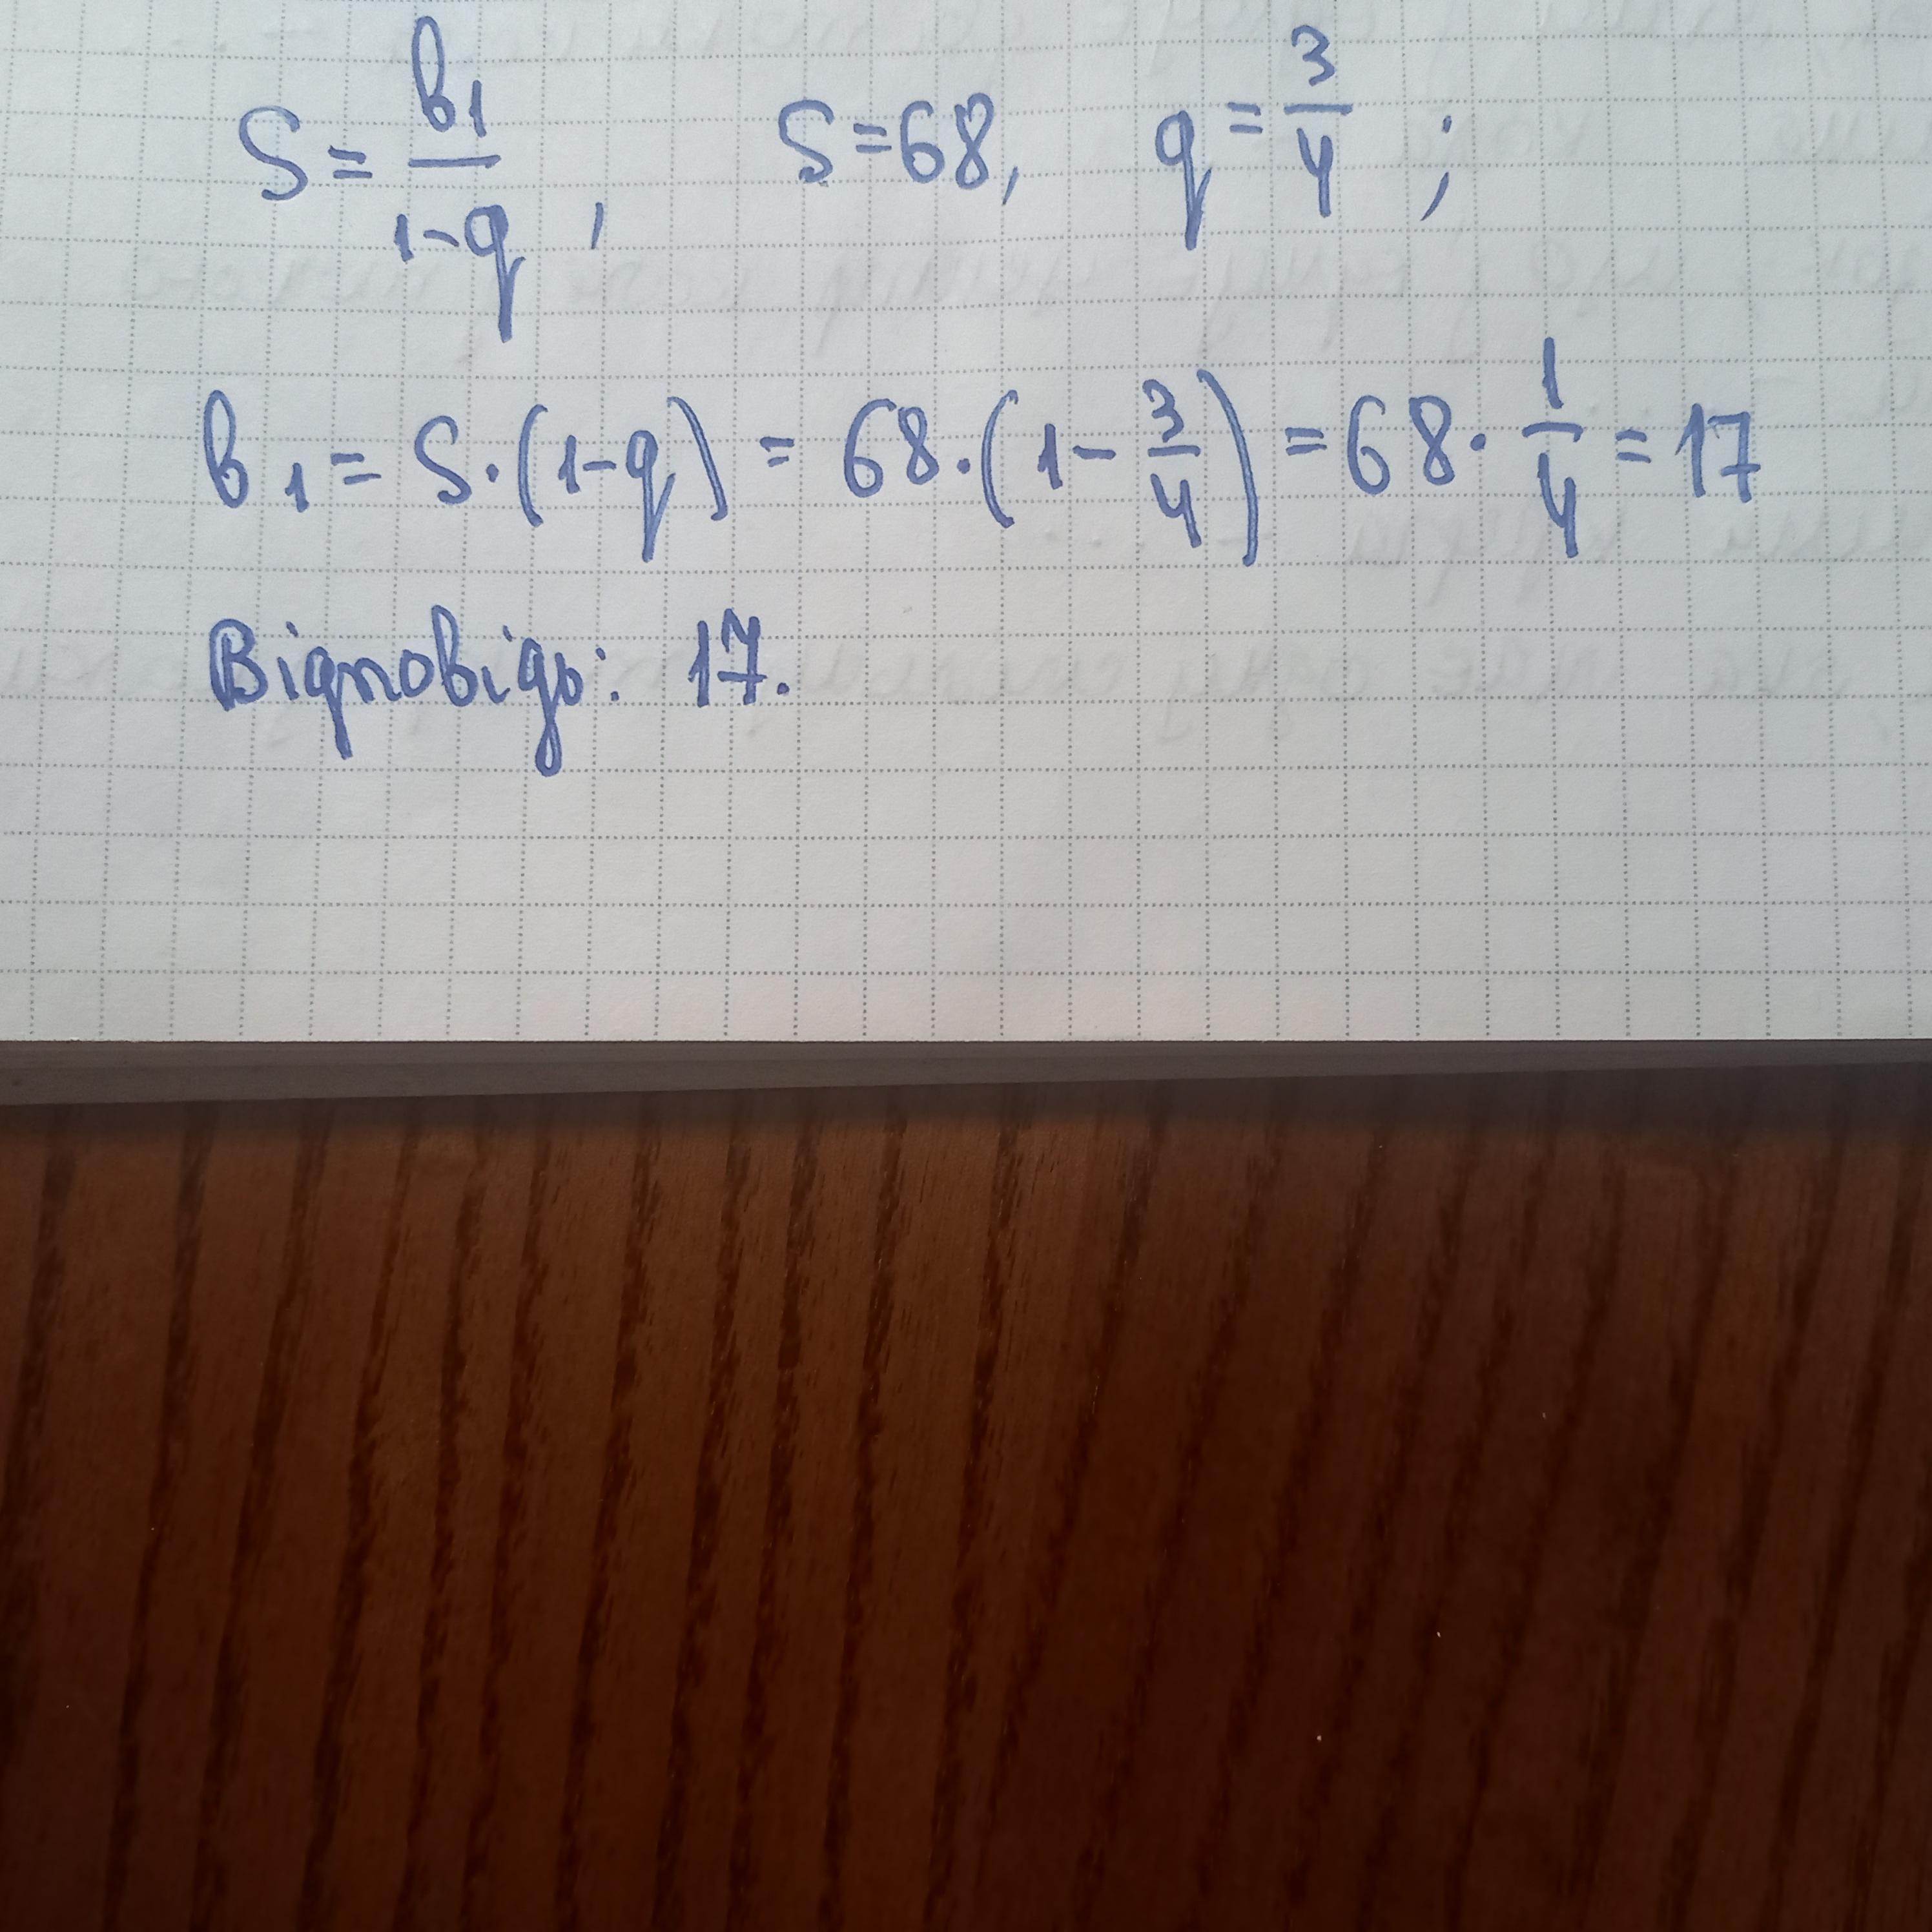 S = b₁/(1-q), S=68, q = 3/4;
b₁ = S·(1-q) = 68·(1 - 3/4) = 68·1/4 = 17
Відповідь: 17.